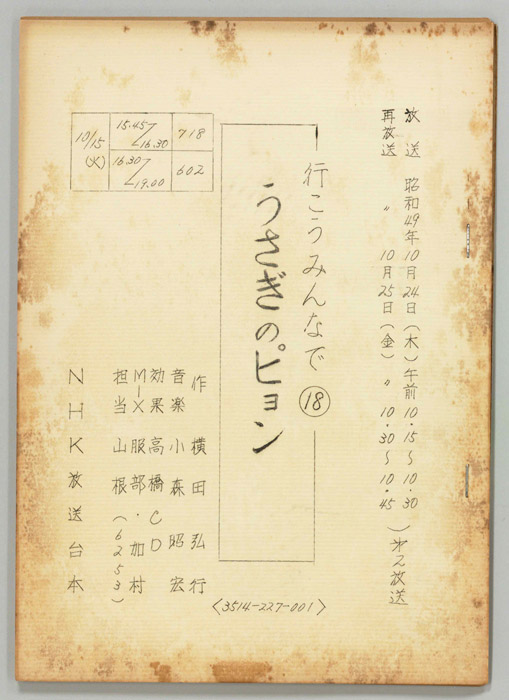 放送 昭和49年10月24日(木)午前10・15〜10・30
再放送 〃 10月25日(金)〃 10・30〜10・45
)第2放送
行こうみんなで⑱
うさぎのピョン
10/15
(火)
15.45
16.30
718
16.30
19.00
602
作 横田弘行
音楽 小森昭宏
効果 高橋CD
M-X 服部・加村
担当 山根(6253)
NHK放送台本
〈3514-227-001〉